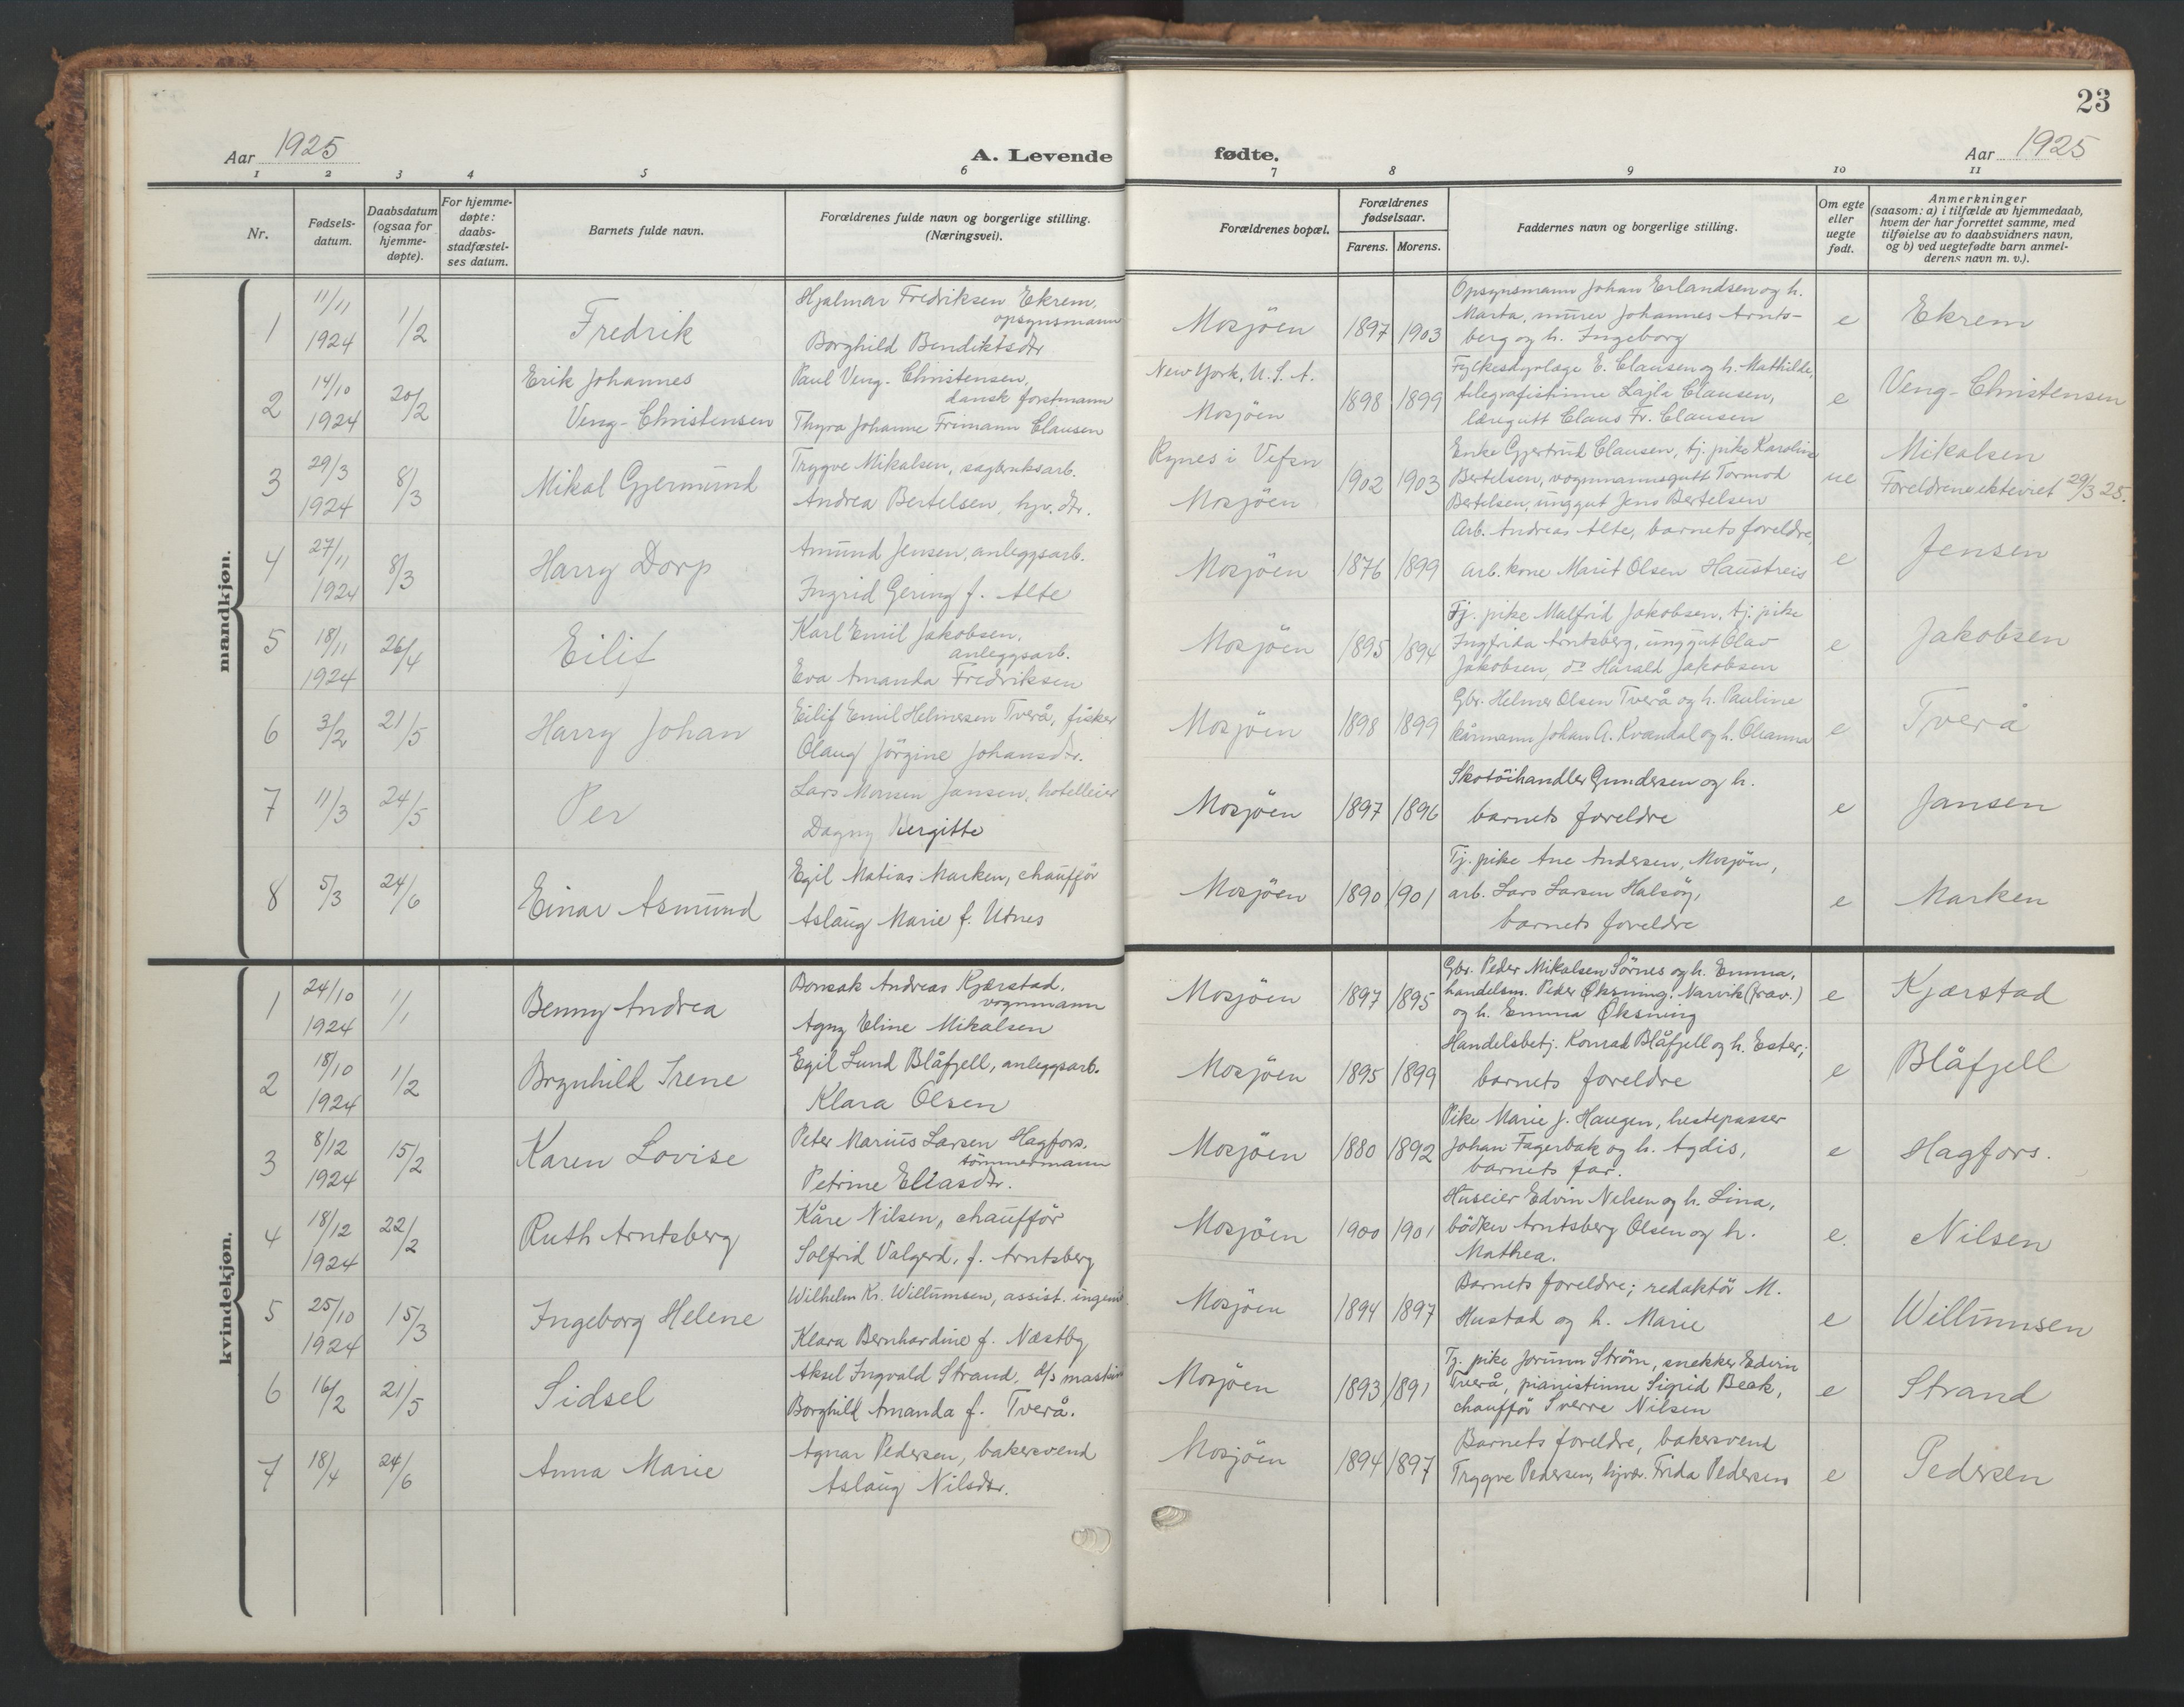 23
Aar 1925
A. Levende
fødte.
Aar 1925
1 2 3 4 5 6 7 8 9 10 11
Nr.
Fødsels-
datum.
Daabsdatum
(ogsaa for
hjemme-
døpte).
For hjemme-
døpte:
daabs-
stadfæstel-
ses datum.
Barnets fulde navn.
Forældrenes fulde navn og borgerlige stilling.
(Næringsvei).
Forældrenes bopæl.
Forældrenes
fødselsaar.
Farens. Morens.
Faddernes navn og borgerlige stilling.
Om egte
eller
uegte
født.
Anmerkninger
(saasom: a) i tilfælde av hjemmedaab,
hvem der har forrettet samme, med
tilføielse av to daabsvidners navn,
og b) ved uegtefødte barn anmel-
derens navn m. v.).
mandkjøn.
1 11/11 1924 1/2 Fredrik
Hjalmar Fredriksen Ekrem,
opsynsmann
Borghild Bendiktsdtr
Mosjöen 1897 1903
Opsynsmann Johan Erlandsen og h.
Marta, murer Johannes Arnts-
berg og h. Ingeborg
e Ekrem
2 14/10 1924 20/2 Erik Johannes
Veng-Christensen
Paul Veng-Christensen,
dansk forstmann
Thyra Johanne Frimann Clausen
New York, U.S.A.
Mosjöen 1898 1899
Fylkesdyrlæge E. Clausen og h. Mathilde,
telegrafistinne Lajla Clausen,
læregutt Claus Fr. Clausen
e Veng-Christensen
3 29/3 1924 8/3 Mikal Gjermund
Trygve Mikalsen, sagbruksarb.
Andrea Bertelsen, hjv. dtr.
Rynes i Vefsn
Mosjöen 1902 1903
Enke Gjertrud Clausen, tj. pike Karoline
Bertelsen, vognmannsgutt Tormod
Bertelsen, unggut Jens Bertelsen
ue Mikalsen
Foreldrene ekteviet 29/3 25.
4 27/11 1924 8/3 Harry Dorp
Amund Jensen, anleggsarb.
Ingrid Gering f. Alte
Mosjöen 1876 1899
Arb. Andreas Alte, barnets foreldre,
arb. kone Marit Olsen Haustreis
e Jensen
5 18/11 1924 26/4 Eilif
Karl Emil Jakobsen,
anleggsarb.
Eva Amanda Fredriksen
Mosjöen 1895 1894
Tj. pike Malfrid Jakobsen, tj. pike
Ingfrida Arntsberg, unggut Olav
Jakobsen, do Harald Jakobsen
e Jakobsen
6 3/2 21/5 Harry Johan
Eilif Emil Helmersen Tverå, fisker
Olaug Jörgine Johansdtr.
Mosjöen 1898 1899
Gbr. Helmer Olsen Tverå og h. Pauline
kårmann Johan A. Kvandal og h. Oleanna
e Tverå
7 11/3 24/5 Per
Lars Monsen Jansen, hotelleier
Dagny Bergitte
Mosjöen 1897 1896
Skotöihandler Gundersen og h.
barnets foreldre
e Jansen
8 5/3 24/6 Einar Asmund
Egil Matias Marken, chauffør
Aslaug Marie f. Utnes
Mosjöen 1890 1901
Tj. pike Ane Andersen, Mosjöen,
arb. Lars Larsen Halsøy,
barnets foreldre
e Marken
kvindekjøn.
1 24/10 1924 1/1 Benny Andrea
Bonsak Andreas Kjærstad,
vognmann
Agny Eline Mikalsen
Mosjöen 1897 1895
Gbr. Peder Mikalsen Sörnes og h. Emma,
handelsm. Peder Øksning, Narvik (frav.)
og h. Emma Øksning
e Kjærstad
2 18/10 1924 1/2 Brynhild Irene
Egil Lund Blåfjell, anleggsarb.
Klara Olsen
Mosjöen 1895 1899
Handelsbetj. Konrad Blåfjell og h. Ester;
barnets foreldre
e Blåfjell
3 8/12 1924 15/2 Karen Lovise
Peter Marius Larsen Hagfors,
tömmermann
Petrine Eliasdtr.
Mosjöen 1880 1892
Pike Marie J. Haugen, hestepasser
Johan Fagerbak og h. Agdis,
barnets far.
e Hagfors.
4 18/12 1924 22/2 Ruth Arntsberg
Kåre Nilsen, chauffør
Solfrid Valgerd, f. Arntsberg
Mosjöen 1900 1901
Huseier Edvin Nilsen og h. Lina,
bödker Arntsberg Olsen og h.
Mathea.
e. Nilsen
5 25/10 1924 15/3 Ingeborg Helene
Wilhelm Kr. Willumsen, assist. ingeniö
Klara Bernhardine f. Næstby
Mosjöen 1894 1897
Barnets foreldre; redaktör M.
Hustad og h. Marie
e Willumsen
6 16/2 21/5 Sidsel
Aksel Ingvald Strand, d/s maskin
Borghild Amanda f. Tverå.
Mosjöen 1893 1891
Tj. pike Jorunn Ström, snekker Edvin
Tverå, pianistinne Sigrid Beck,
chauffør Sverre Nilsen
e Strand
7 18/4 24/6 Anna Marie
Agnar Pedersen, bakersvend
Aslaug Nilsdtr.
Mosjöen 1894 1897
Barnets foreldre, bakersvend
Trygve Pedersen, hjvær. Frida Pedersen
e Pedersen